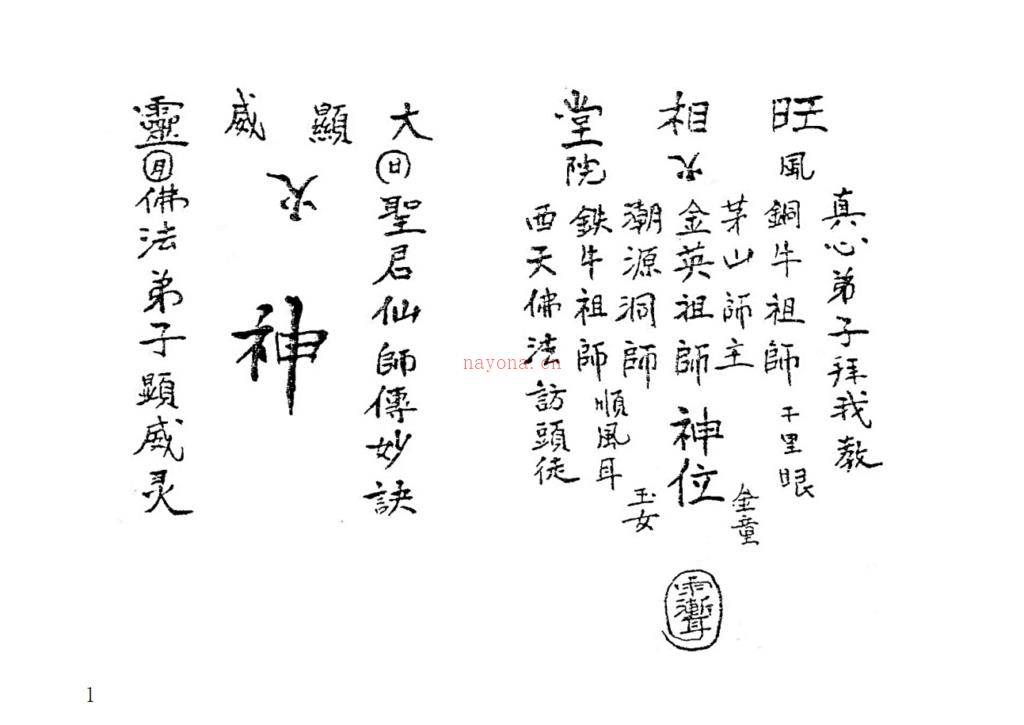 旺相堂
風火院
真心弟子拜我教
銅牛祖師
千里眼
茅山師主
金童
金英祖師神位
潮源洞師
玉女
鉄牛祖師
順風耳
西天佛法訪頭徒
大顯威靈
日
聖君仙師傳妙訣
火
神
月
佛法弟子顕威灵
nayona.cn
1